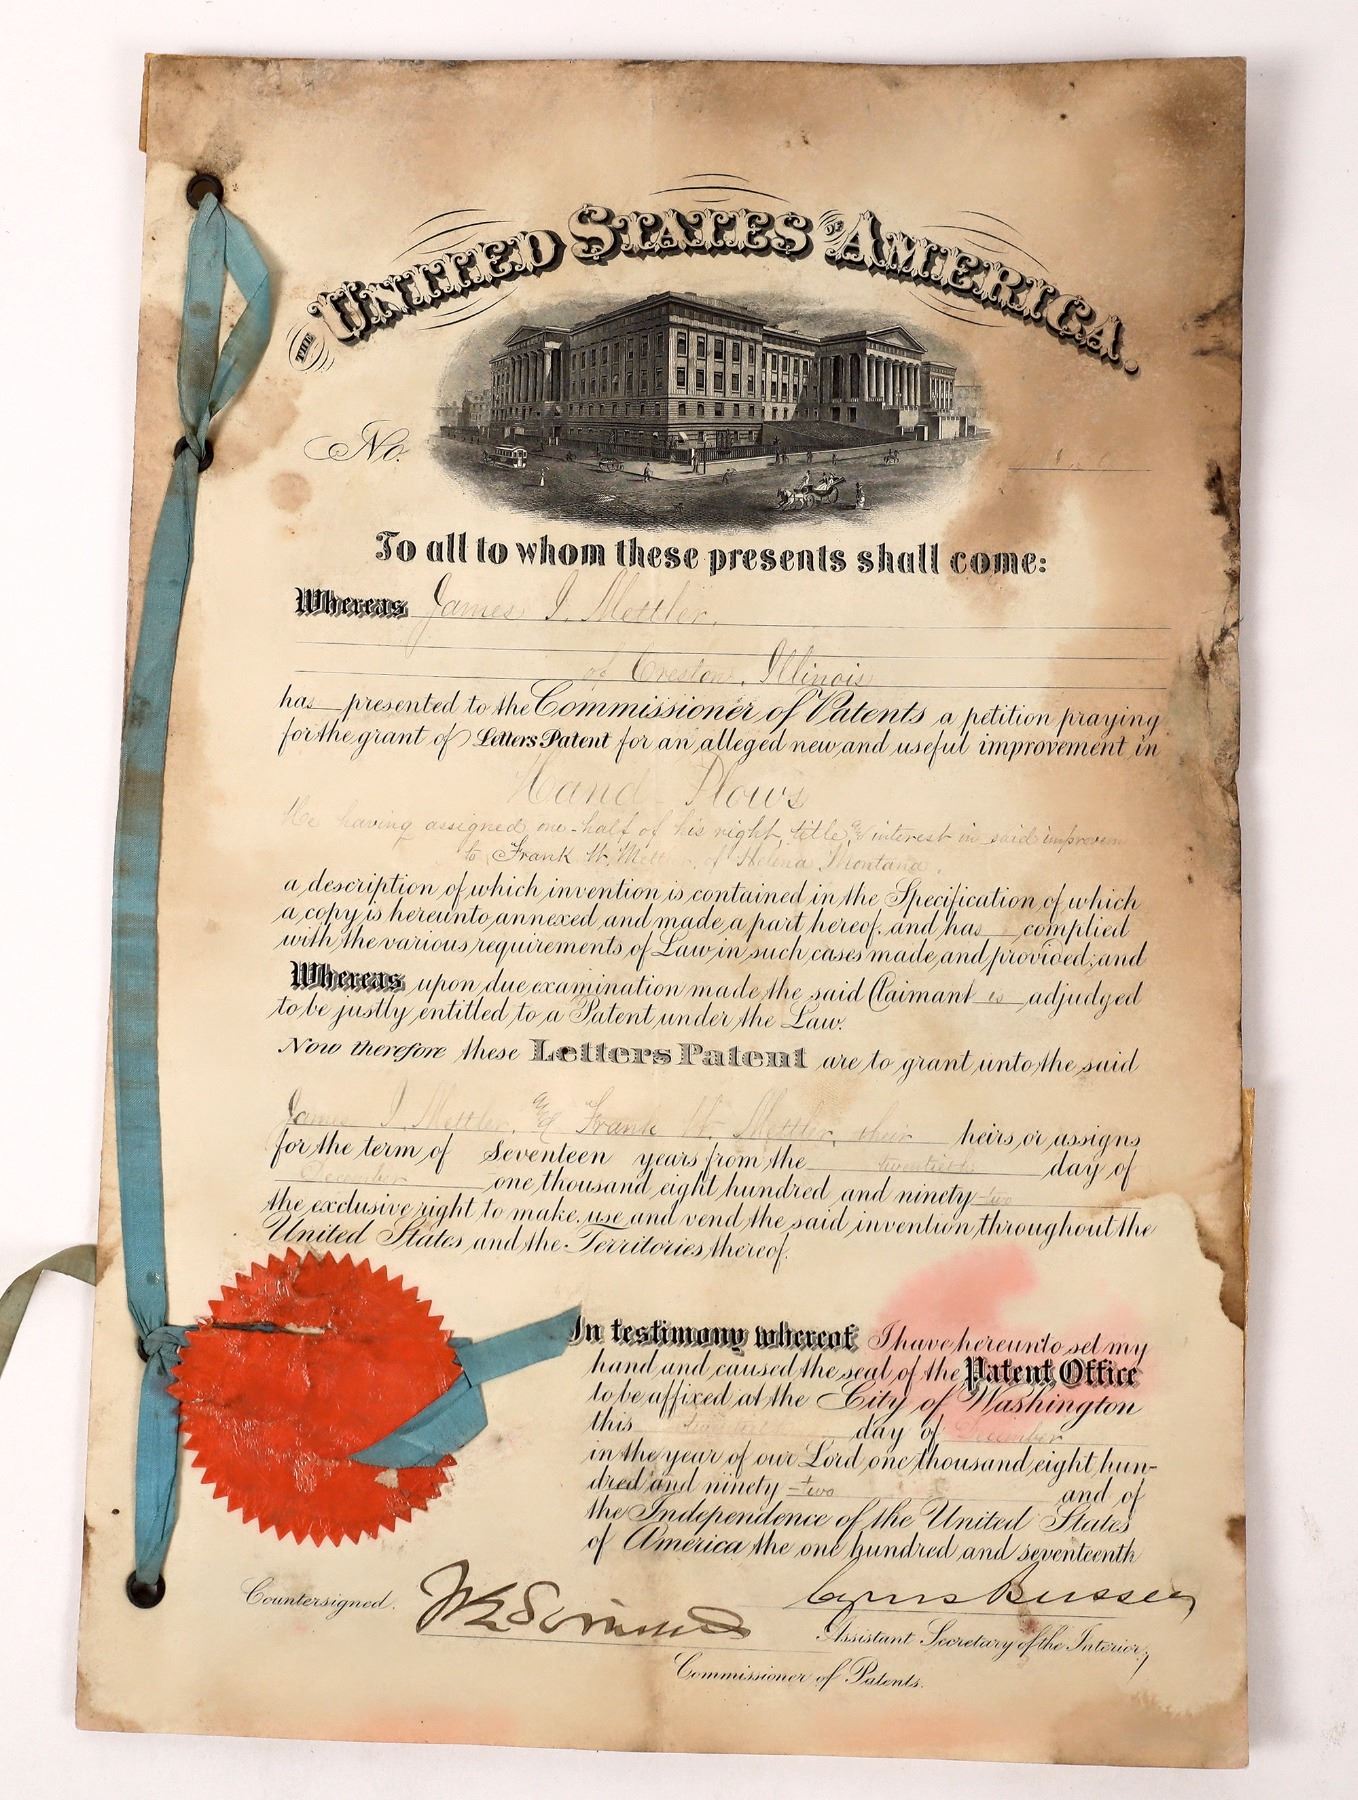 THE UNITED STATES OF AMERICA.
No.
To all to whom these presents shall come:
Whereas James I. Mettler,
of Creston, Illinois
has presented to the Commissioner of Patents a petition praying
for the grant of Letters Patent for an alleged new and useful improvement in
Hand Plows
He having assigned one-half of his right, title, & interest in said improvem
to Frank W. Mettler, of Helena Montana.
a description of which invention is contained in the Specification of which
a copy is hereunto annexed and made a part hereof, and has complied
with the various requirements of Law in such cases made and provided; and
Whereas upon due examination made the said Claimant is adjudged
to be justly entitled to a Patent under the Law.
Now therefore these Letters Patent are to grant unto the said
James I. Mettler, & Frank W. Mettler, their heirs or assigns
for the term of Seventeen years from the twentieth day of
December one thousand eight hundred and ninety-two
the exclusive right to make, use and vend the said invention throughout the
United States and the Territories thereof.
In testimony whereof I have hereunto set my
hand and caused the seal of the Patent Office
to be affixed at the City of Washington
this twentieth day of December
in the year of our Lord one thousand eight hun-
dred and ninety-two and of
the Independence of the United States
of America the one hundred and seventeenth
Countersigned. Cyrus Bussey
Assistant Secretary of the Interior,
Commissioner of Patents.